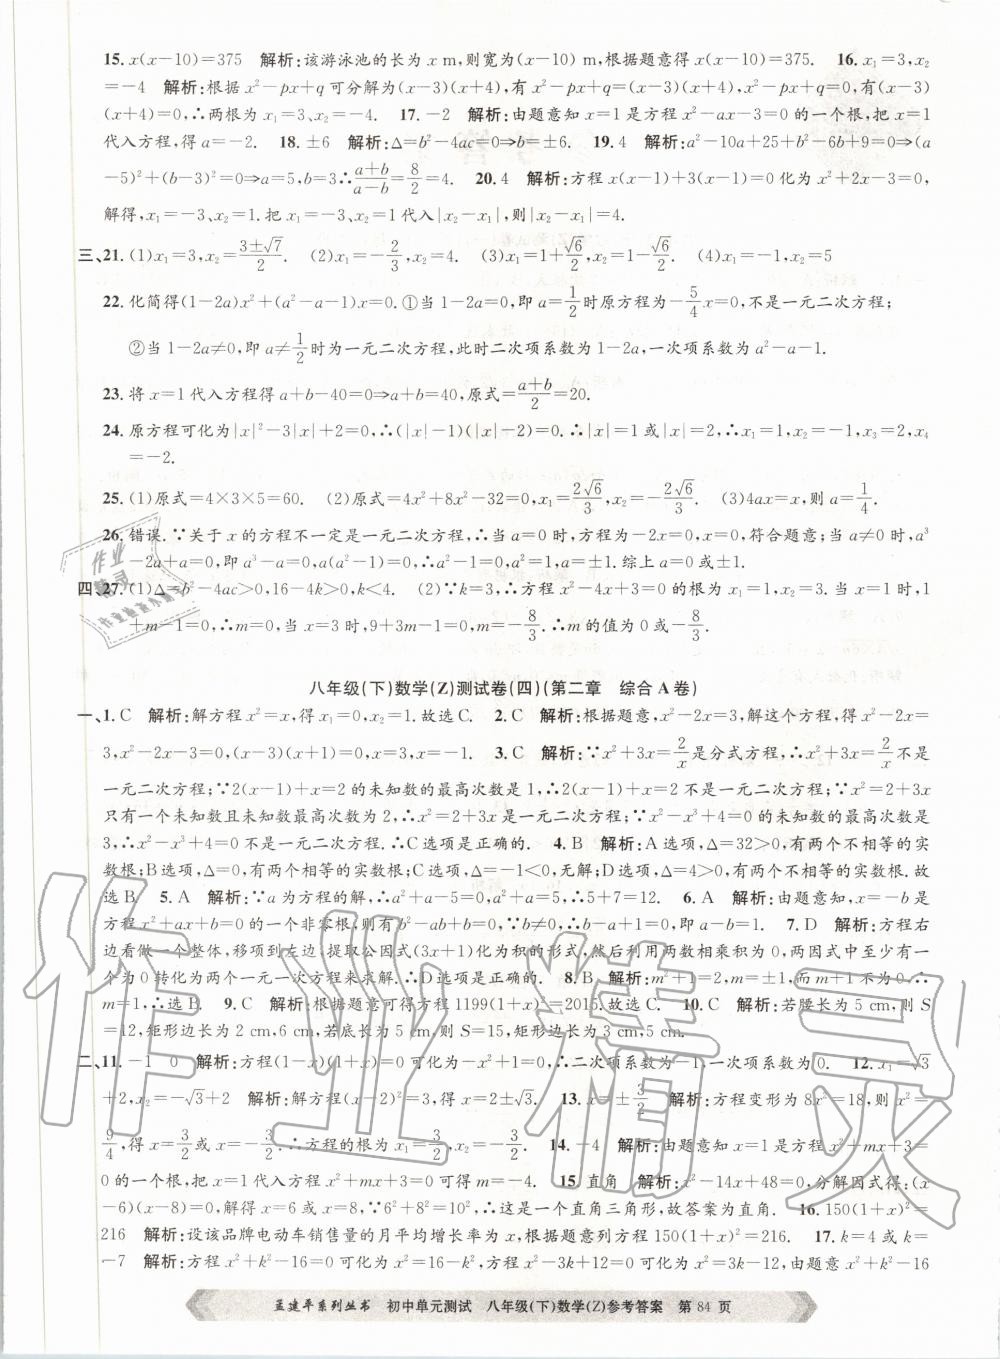 15. x(x-10)=375　解析:该游泳池的长为 x m,则宽为(x-10) m,根据题意得 x(x-10)=375.　16. x₁=3,x₂
=-4　解析:根据 x²-px+q 可分解为(x-3)(x+4),有 x²-px+q=(x-3)(x+4),x²-px+q=0,有(x-3)
(x+4)=0,∴两根为 x₁=3、x₂=-4.　17. -2　解析:由题意知 x=1 是方程 x²-ax-3=0 的一个根,把 x=1
代入方程,得 a=-2.　18. ±6　解析:Δ=b²-4ac=0⇒b=±6.　19. 4　解析:a²-10a+25+b²-6b+9=0⇒(a
-5)²+(b-3)²=0⇒a=5,b=3∴(a+b)/(a-b)=8/2=4.　20. 4　解析:方程 x(x-1)+3(x-1)=0 化为 x²+2x-3=0,
解得,x₁=-3、x₂=1.把 x₁=-3、x₂=1代入|x₂-x₁|,则|x₂-x₁|=4.
三、21. (1)x₁=3,x₂=(3±√7)/2.　(2)x₁=-2/3,x₂=4.　(3)x₁=1+√6/2,x₂=1-√6/2.　(4)x₁=-1,x₂=5
22. 化简得(1-2a)x²+(a²-a-1)x=0.①当 1-2a=0,即 a=1/2时原方程为-5/4x=0,不是一元二次方程;
②当 1-2a≠0,即 a≠1/2时为一元二次方程,此时二次项系数为 1-2a,一次项系数为 a²-a-1.
23. 将 x=1 代入方程得 a+b-40=0⇒a+b=40,原式=(a+b)/2=20.
24. 原方程可化为|x|²-3|x|+2=0,∴(|x|-1)(|x|-2)=0.∴|x|=1 或|x|=2,∴x₁=1,x₂=-1,x₃=2,x₄
=-2.
25. (1)原式=4×3×5=60.　(2)原式=4x²+8x²-32=0,x₁=2√6/3,x₂=-2√6/3.　(3)4ax=x,则 a=1/4.
26. 错误.∵关于 x 的方程不一定是一元二次方程,∴当 a=0 时,-2x=0,x=0,符合题意;当 a≠0 时,a³
-2a+a=0,即 a³-a=0,a(a²-1)=0,∴a²=1,a=±1.综上 a=0 或±1.
四、27. (1)Δ=b²-4ac>0,16-4k>0,k<4.　(2)∵k=3,∴方程 x²-4x+3=0 的根为 x=1 或 3,当 x=1 时,1
+m-1=0,∴m=0,当 x=3 时,9+3m-1=0,m=-8/3.∴m 的值为 0 或-8/3.
八年级(下)数学(Z)测试卷(四)(第二章　综合 A 卷)
一、1. C　解析:解方程 x²=x,得 x₁=0,x₂=1.故选 C.　2. C　解析:根据题意,x²-2x=3,解这个方程,得 x²-2x=
3,x²-2x-3=0,(x-3)(x+1)=0,x=3,x=-1.　3. C　解析:∵x²+3x=2/x是分式方程,∴x²+3x=2/x不是
一元二次方程;∵2(x-1)+x=2 的未知数的最高次数是 1,∴2(x-1)+x=2 不是一元二次方程;∵x²=2+3x
只有一个未知数且未知数最高次数为 2,∴x²=2+3x 是一元二次方程;∵x²-x³+4=0 的未知数的最高次数是
3,∴x²-x³+4=0 不是一元二次方程.∴C选项是正确的.　4. B　解析:A 选项,Δ=32>0,有两个不相等的实
数根;B 选项,Δ=0,有两个相等的实数根;C 选项,Δ=-1<0,无解;D 选项,Δ=4>0,有两个不相等的实数根.故
选 B　5. A　解析:∵a 为方程的解,∴a²+a-5=0,∴a²+a=5,∴5+7=12.　6. A　解析:由题意知,x=-b 是
方程 x²+ax+b=0 的一个非零根,则有 b²-ab+b=0,∵b≠0,∴b-a+1=0,即 a-b=1.　7. D　解析:方程右
边看做一个整体,移项到左边,提取公因式(3x+1)化为积的形式,然后利用两数相乘积为 0,两因式中至少有一
个为 0 转化为两个一元一次方程来求解.∴D选项是正确的.　8. B　解析:m²+1=2,m=±1,而 m+1 不为 0,∴
m=1,∴选 B　9. C　解析:根据题意可得方程 1199(1+x)²=2015.故选 C.　10. C　解析:若腰长为 5 cm,则 S
=12,矩形边长为 2 cm,6 cm,若底长为 5 cm,则 S=15,矩形边长为 3 cm,5 cm.
二、11. -1　0　解析:方程(1-x)(1+x)=0 可化为-x²+1=0,∴二次项系数为-1,一次项系数为 0.　12. x₁=√3
+2,x₂=-√3+2　解析:解方程(x-2)²=3,得 x=2±√3.　13. x=±3/2　解析:方程变形为 8x²=18,则 x²=
9/4,得 x=3/2或 x=-3/2.∴方程的根为 x₁=3/2,x₂=-3/2.　14. -4　解析:由题意知 x=1 是方程 x²+mx+3=
0 的一个根,把 x=1 代入方程 x²+mx+3=0 可得 m=-4.　15. 直角　解析:x²-14x+48=0,分解因式得:(x
-6)(x-8)=0,解得 x=6 或 x=8,∵6²+8²=10²,∴这是一个直角三角形,故答案为直角.　16. 150(1+x)²=
216　解析:设该品牌电动车销售量的月平均增长率为 x,根据题意列方程 150(1+x)²=216.　17. k=4 或 k=
-7　解析:方程 x²+kx-16=0 可化为 k²+k²-16=0 可化为 x²+3x-k=0.∵方程 x²+kx-16
孟建平系列丛书　初中单元测试　八年级(下)数学(Z)参考答案　第 84 页
作业精灵